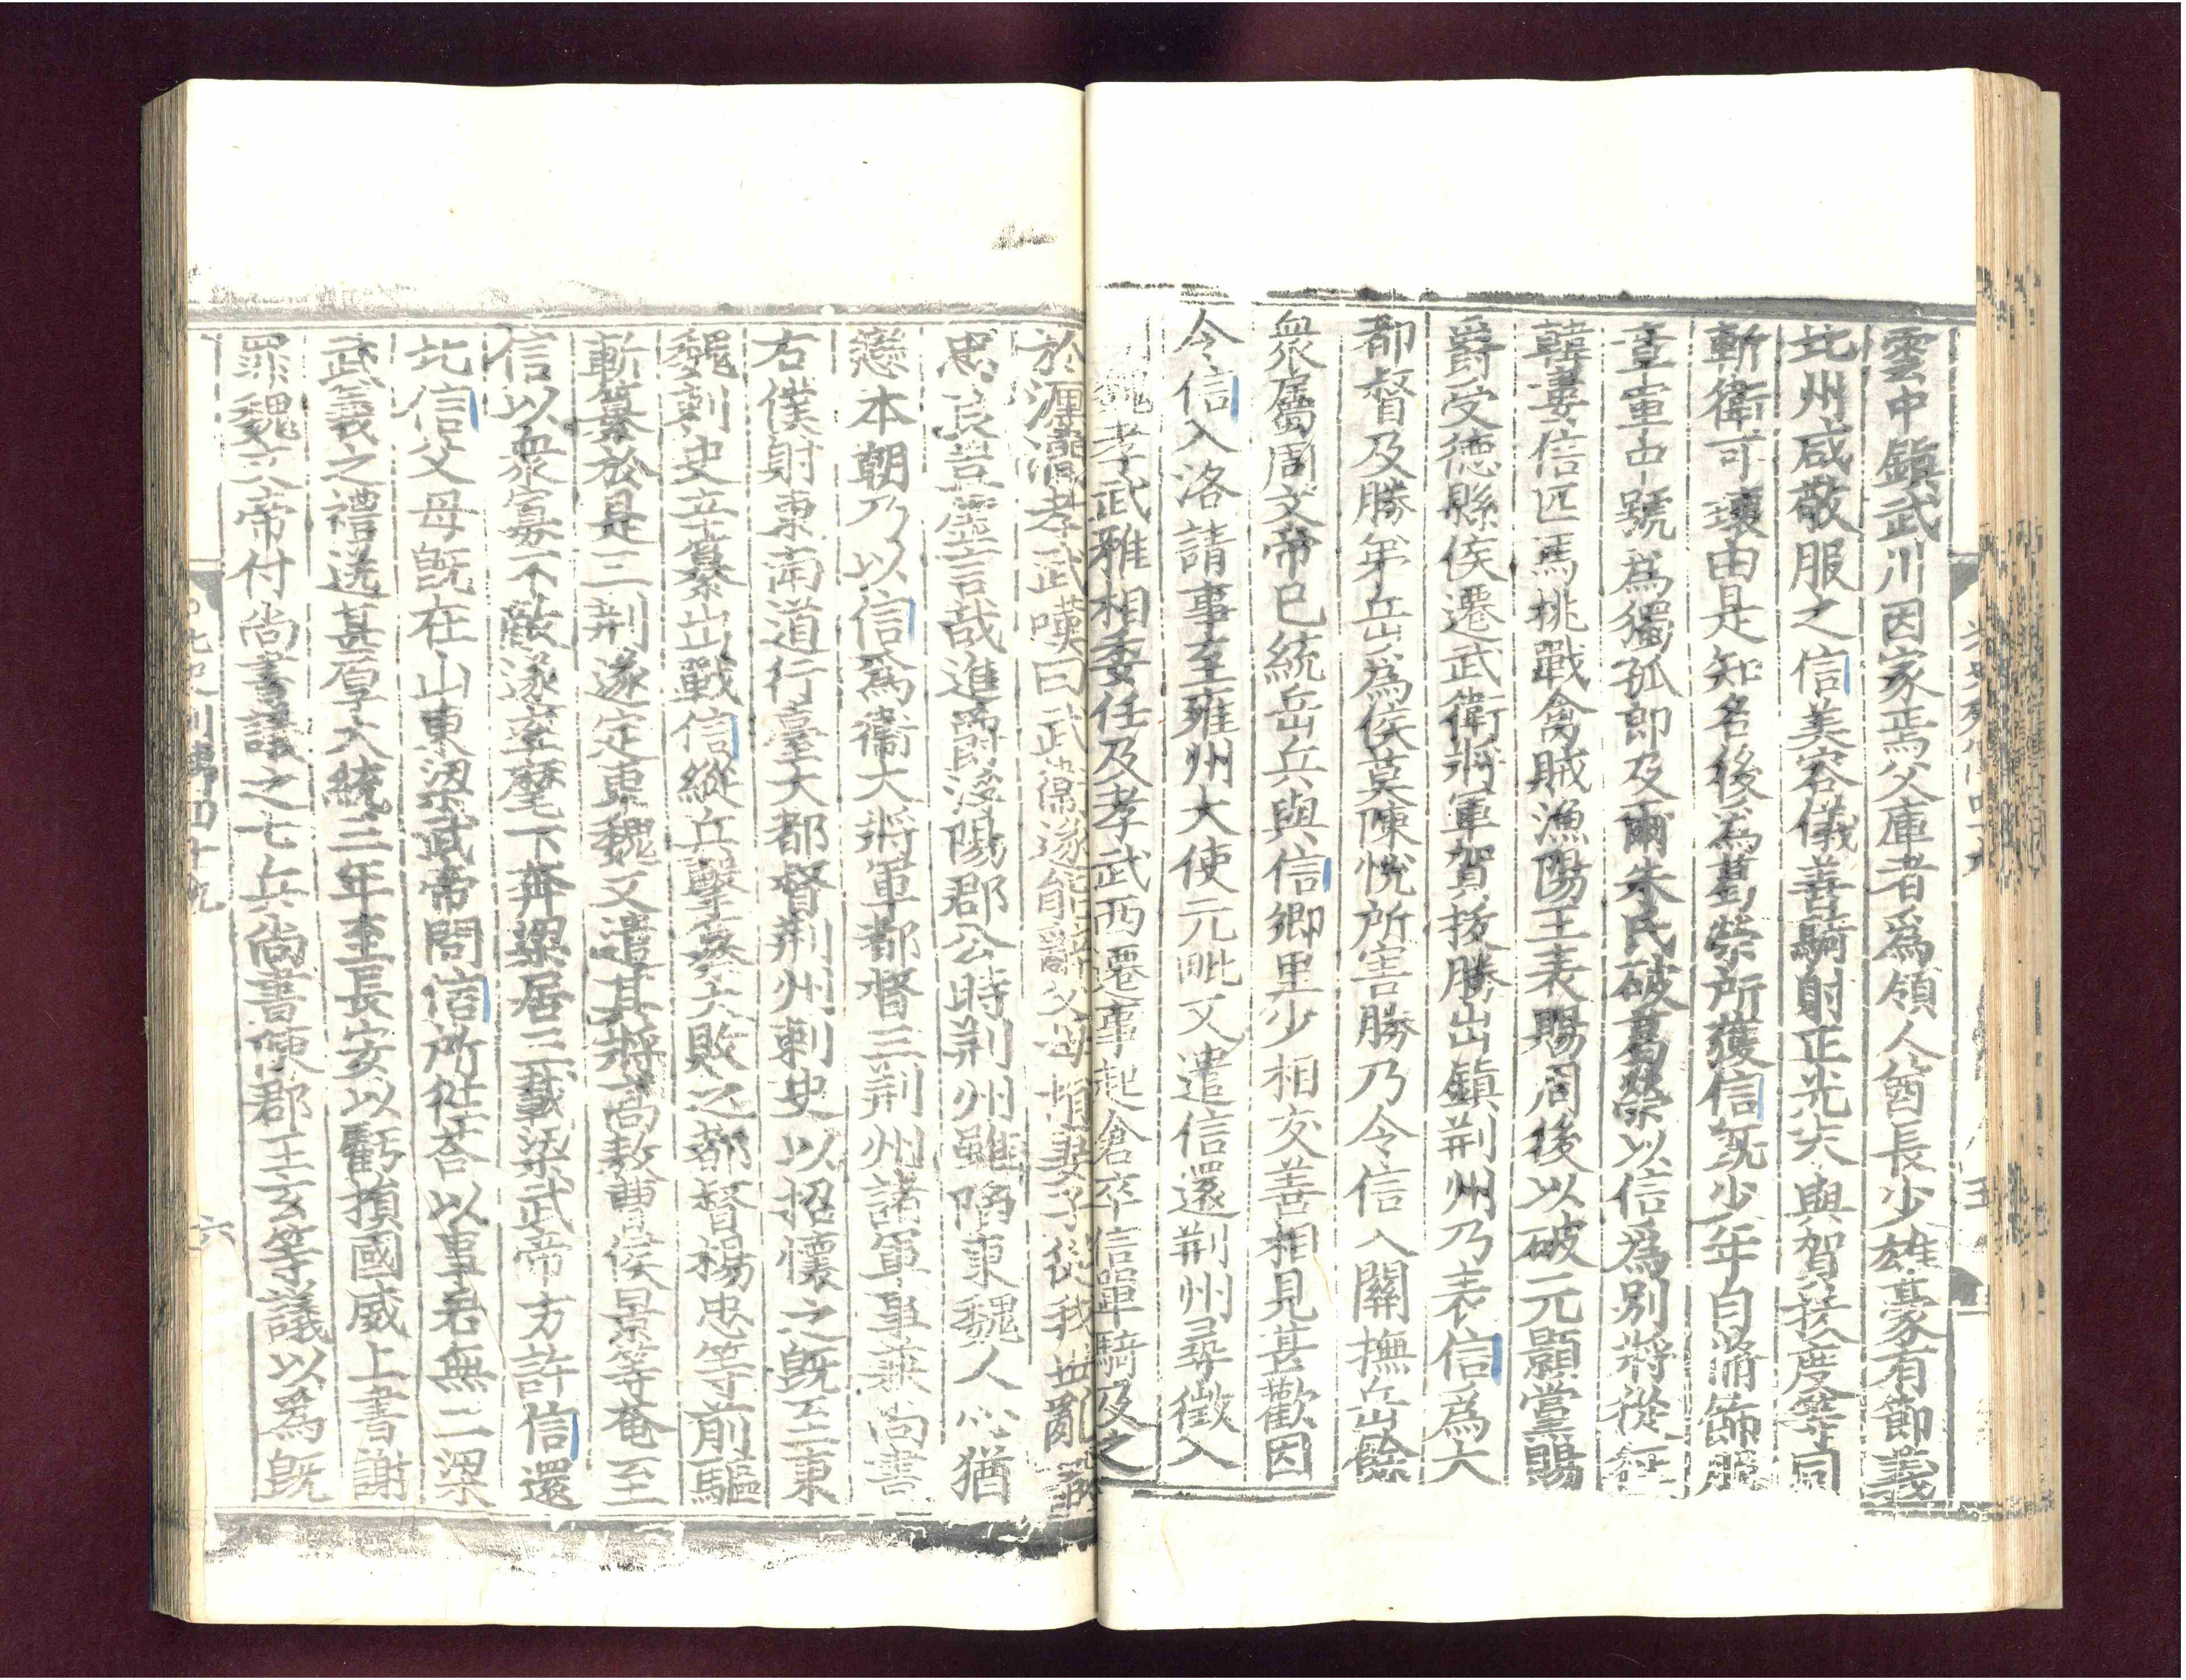 雲中鎮武川因家焉父庫者爲領人酋長少雄豪有節義
北州咸敬服之信美容儀善騎射正光末與賀拔度等同
斬衛可瓌由是知名後爲葛榮所獲信既少年自脩飾服
章軍中號爲獨孤郎及爾朱氏破葛榮以信爲別將從征
韓婁信匹馬挑戰禽賊漁陽王袁賜周後以破元顥黨賜
爵受德縣侯遷武衛將軍賀拔勝出鎮荆州乃表信爲大
都督及勝弟岳爲侯莫陳悅所害勝乃令信入關撫岳餘
衆屬周文帝已統岳兵與信鄉里少相交善相見甚歡因
令信入洛請事至雍州大使元毗又遣信還荆州尋徵入
魏孝武雅相委任及孝武西遷事起倉卒信單騎及之
於瀍澗孝武嘆曰武衛遂能辭父母捐妻子從我世亂識
忠良豈虛言哉進爵浮陽郡公時荆州雖陷東魏人心猶
戀本朝乃以信爲衛大將軍都督三荆州諸軍事兼尚書
右僕射東南道行臺大都督荆州刺史以招懷之既至東
魏刺史辛纂出戰信縱兵擊纂大敗之都督楊忠等前驅
斬纂於是三荆遂定東魏又遣其將高敖曹侯景等奄至
信以衆寡不敵遂率麾下奔梁居三載梁武帝方許信還
北信父母既在山東梁武帝問信所往荅以事君無二梁
武義之禮送甚厚大統三年至長安以虧損國威上書謝
罪魏文帝付尚書議之七兵尚書陳郡王玄等議以爲既
北史列傳四十九
六